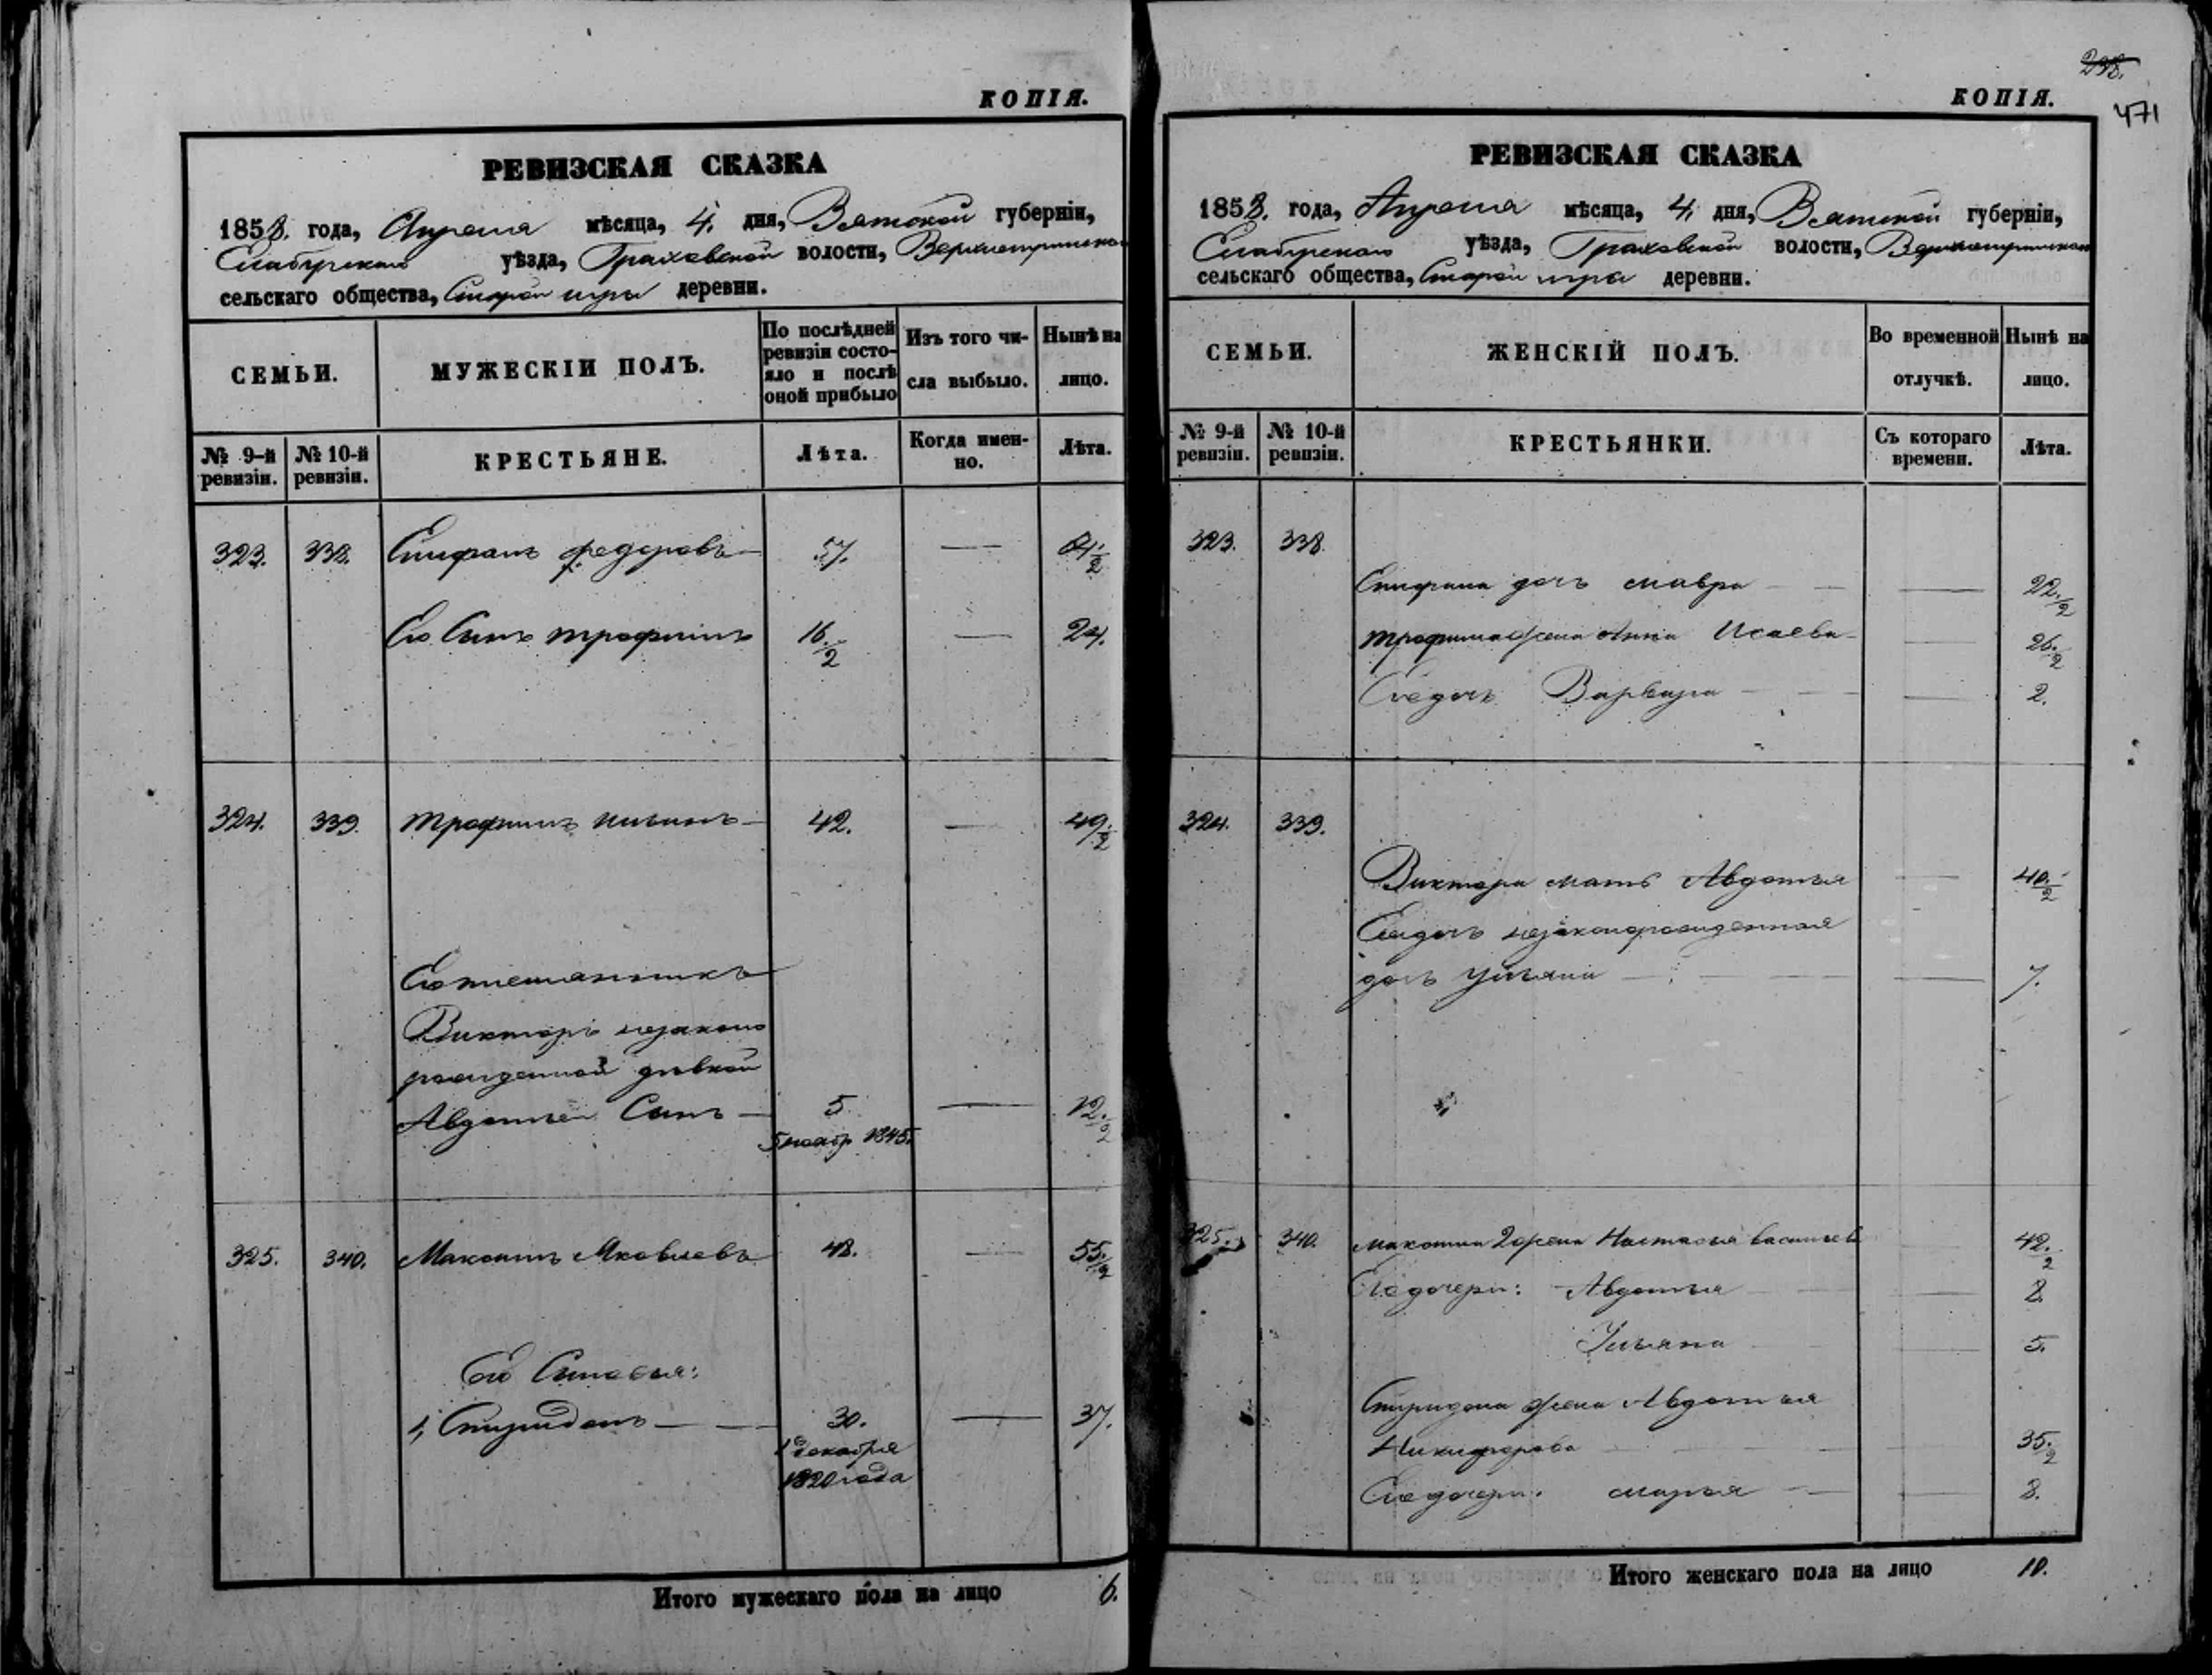 КОПІЯ.
РЕВИЗСКАЯ СКАЗКА
1858. года, Апреля мѣсяца, 4. дня, Вятской губерніи,
Елабугскаго уѣзда, Граховской волости,
сельскаго общества, Старой игры деревни.
СЕМЬИ. МУЖЕСКІЙ ПОЛЪ. По послѣдней ревизіи состояло и послѣ оной прибыло Изъ того числа выбыло. Нынѣ на лицо.
№ 9-й ревизіи. № 10-й ревизіи. КРЕСТЬЯНЕ. Лѣта. Когда именно. Лѣта.
323. 338. Епифанъ Федоровъ — 57. —
Его Сынъ трофимъ 16 1/2 — 24.
324. 339. трофимъ Ильинъ — 42. — 49 1/2
Его племянникъ
Викторъ незаконо
рожденной дѣвкой
Авдотьей Сынъ — 5 — 12 1/2
5 ноябр 1845.
325. 340. Максимъ Яковлевъ 48. — 55 1/2
Его Сыновья:
1, Спиридонъ — 30. — 37.
декабря
1820 года
Итого мужескаго пола на лицо 6.
238.
КОПІЯ.
471
РЕВИЗСКАЯ СКАЗКА
1858. года, Апреля мѣсяца, 4. дня, Вятской губерніи,
Елабугскаго уѣзда, Граховской волости,
сельскаго общества, Старой игры деревни.
СЕМЬИ. ЖЕНСКІЙ ПОЛЪ. Во временной отлучкѣ. Нынѣ на лицо.
№ 9-й ревизіи. № 10-й ревизіи. КРЕСТЬЯНКИ. Съ котораго времени. Лѣта.
323. 338.
Епифана дочь мавра — — 22 1/2
трофима жена Анна Исаева — — 26 1/2
Ея дочь Варвара — — 2.
324. 339.
Виктора мать Авдотья — 40 1/2
Ея дочь незаконорожденная
дочь Ульяна — — 7.
325. 340. максима 2 жена Настасья васильев — 42 1/2
Ея дочери: Авдотья — 8.
Ульяна — 5.
Спиридона жена Авдотья
Никифорова — — 35 1/2
Ея дочери: марья — — 8.
Итого женскаго пола на лицо 10.